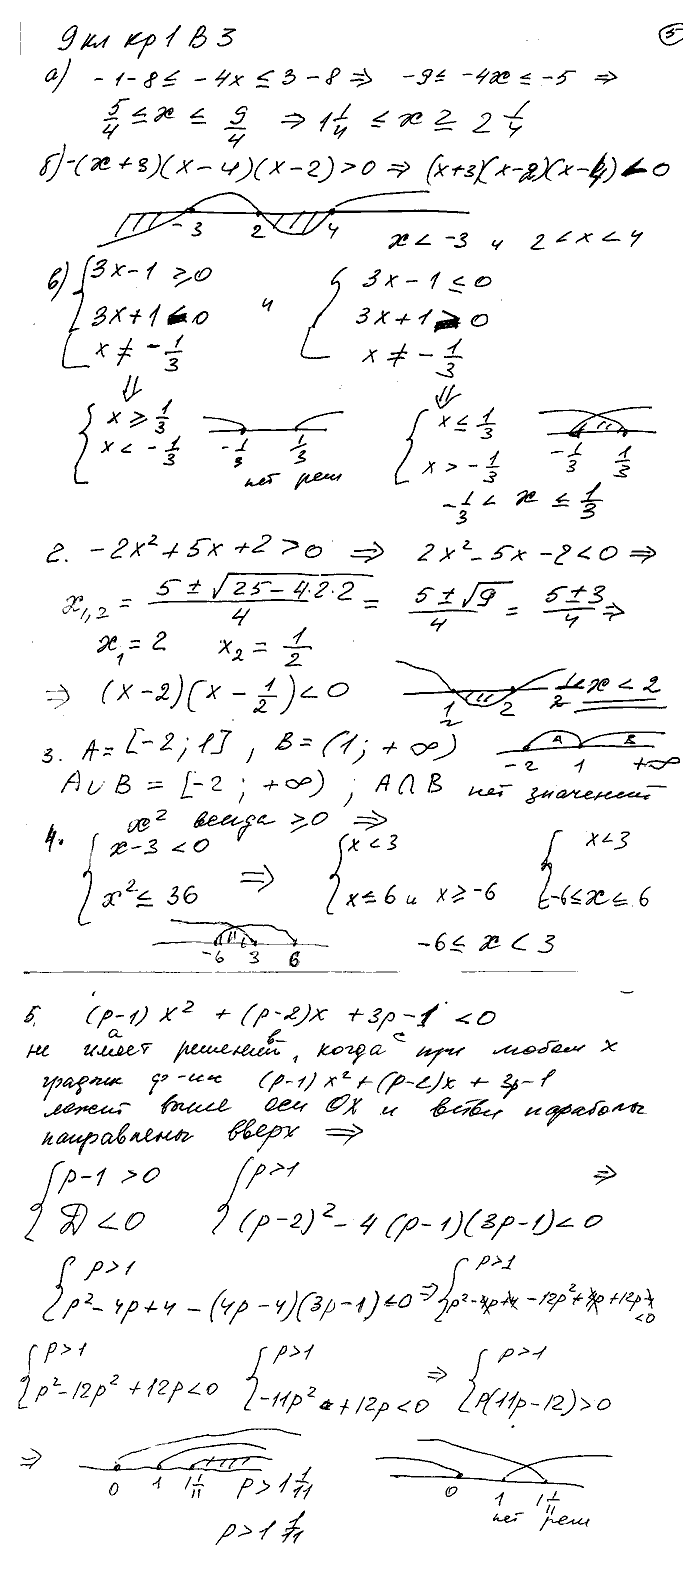 9 кл кр 1 В 3
5
а) -1-8 ≤ -4x ≤ 3-8 ⇒ -9 ≤ -4x ≤ -5 ⇒
5/4 ≤ x ≤ 9/4 ⇒ 1 1/4 ≤ x ≥ 2 1/4
б) -(x+3)(x-4)(x-2)>0 ⇒ (x+3)(x-2)(x-4)<0
-3 2 4 x<-3 и 2<x<4
в) { 3x-1 ≥ 0 { 3x-1 ≤ 0
3x+1 < 0 и 3x+1 > 0
x ≠ -1/3 x ≠ -1/3
⇓ ⇓
{ x ≥ 1/3 { x ≤ 1/3
x < -1/3 -1/3 1/3 x > -1/3 -1/3 1/3
нет реш -1/3 < x ≤ 1/3
2. -2x²+5x+2>0 ⇒ 2x²-5x-2<0 ⇒
x1,2 = (5±√(25-4·2·2))/4 = (5±√9)/4 = (5±3)/4 ⇒
x1=2 x2=1/2
⇒ (x-2)(x-1/2)<0 1/2 2 1/2<x<2
3. A=[-2;1], B=(1;+∞) A B -2 1 +∞
A∪B=[-2;+∞); A∩B нет значений
x² всегда ≥0 ⇒
4. { x-3<0 { x<3 { x<3
x² ≤ 36 ⇒ x≤6 и x≥-6 -6≤x≤6
-6 3 6 -6≤x<3
5. (p-1)x²+(p-2)x+3p-1<0
a в c
не имеет решений, когда при любом x
график ф-ии (p-1)x²+(p-2)x+3p-1
лежит выше оси OX и ветви параболы
направлены вверх ⇒
{ p-1>0 { p>1 ⇒
Д<0 (p-2)²-4(p-1)(3p-1)<0
{ p>1 { p>1
p²-4p+4-(4p-4)(3p-1)<0 ⇒ p²-4p+4-12p²+4p+12p-4<0
{ p>1 { p>1 { p>1
p²-12p²+12p<0 -11p²+12p<0 ⇒ p(11p-12)>0
⇒ 0 1 1 1/11 p>1 1/11 0 1 1 1/11
нет реш
p>1 1/11